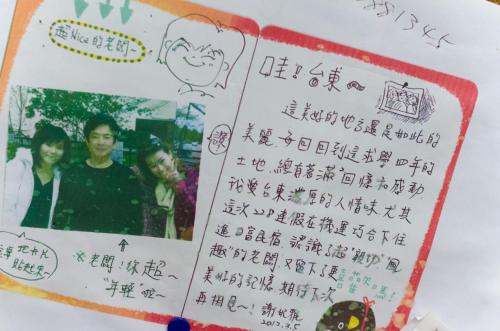 超Nice的老闆~
讚
※老闆!你超~
"年輕"啦~
哇!!台東~
這美好的地方還是如此的
美麗,每回回到這求學四年的
土地,總有著滿滿回憶和感動
我愛台東濃厚的人情味尤其
這次228連假在機運巧合下住
進
民宿,認識了超"親切"風
趣"的老闆,又留下了更
美好的記憶,期待下次
再相見~!
2012.3.5